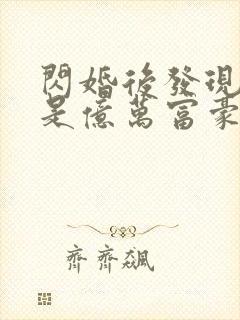 閃婚後發現
是億萬富豪
齊齊飆